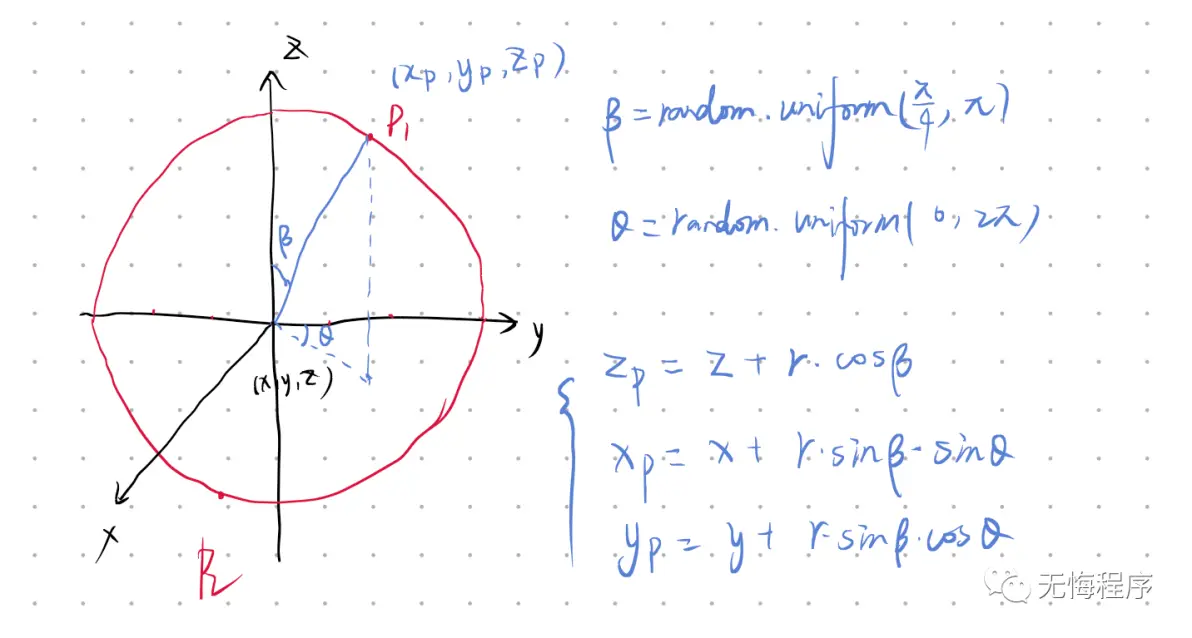 z
(xp, yp, zp)
P₁
β
θ
y
(x, y, z)
x
P₂
β = random.uniform(π/4, π)
θ = random.uniform(0, 2π)
zp = z + r·cosβ
xp = x + r·sinβ·sinθ
yp = y + r·sinβ·cosθ
无悔程序